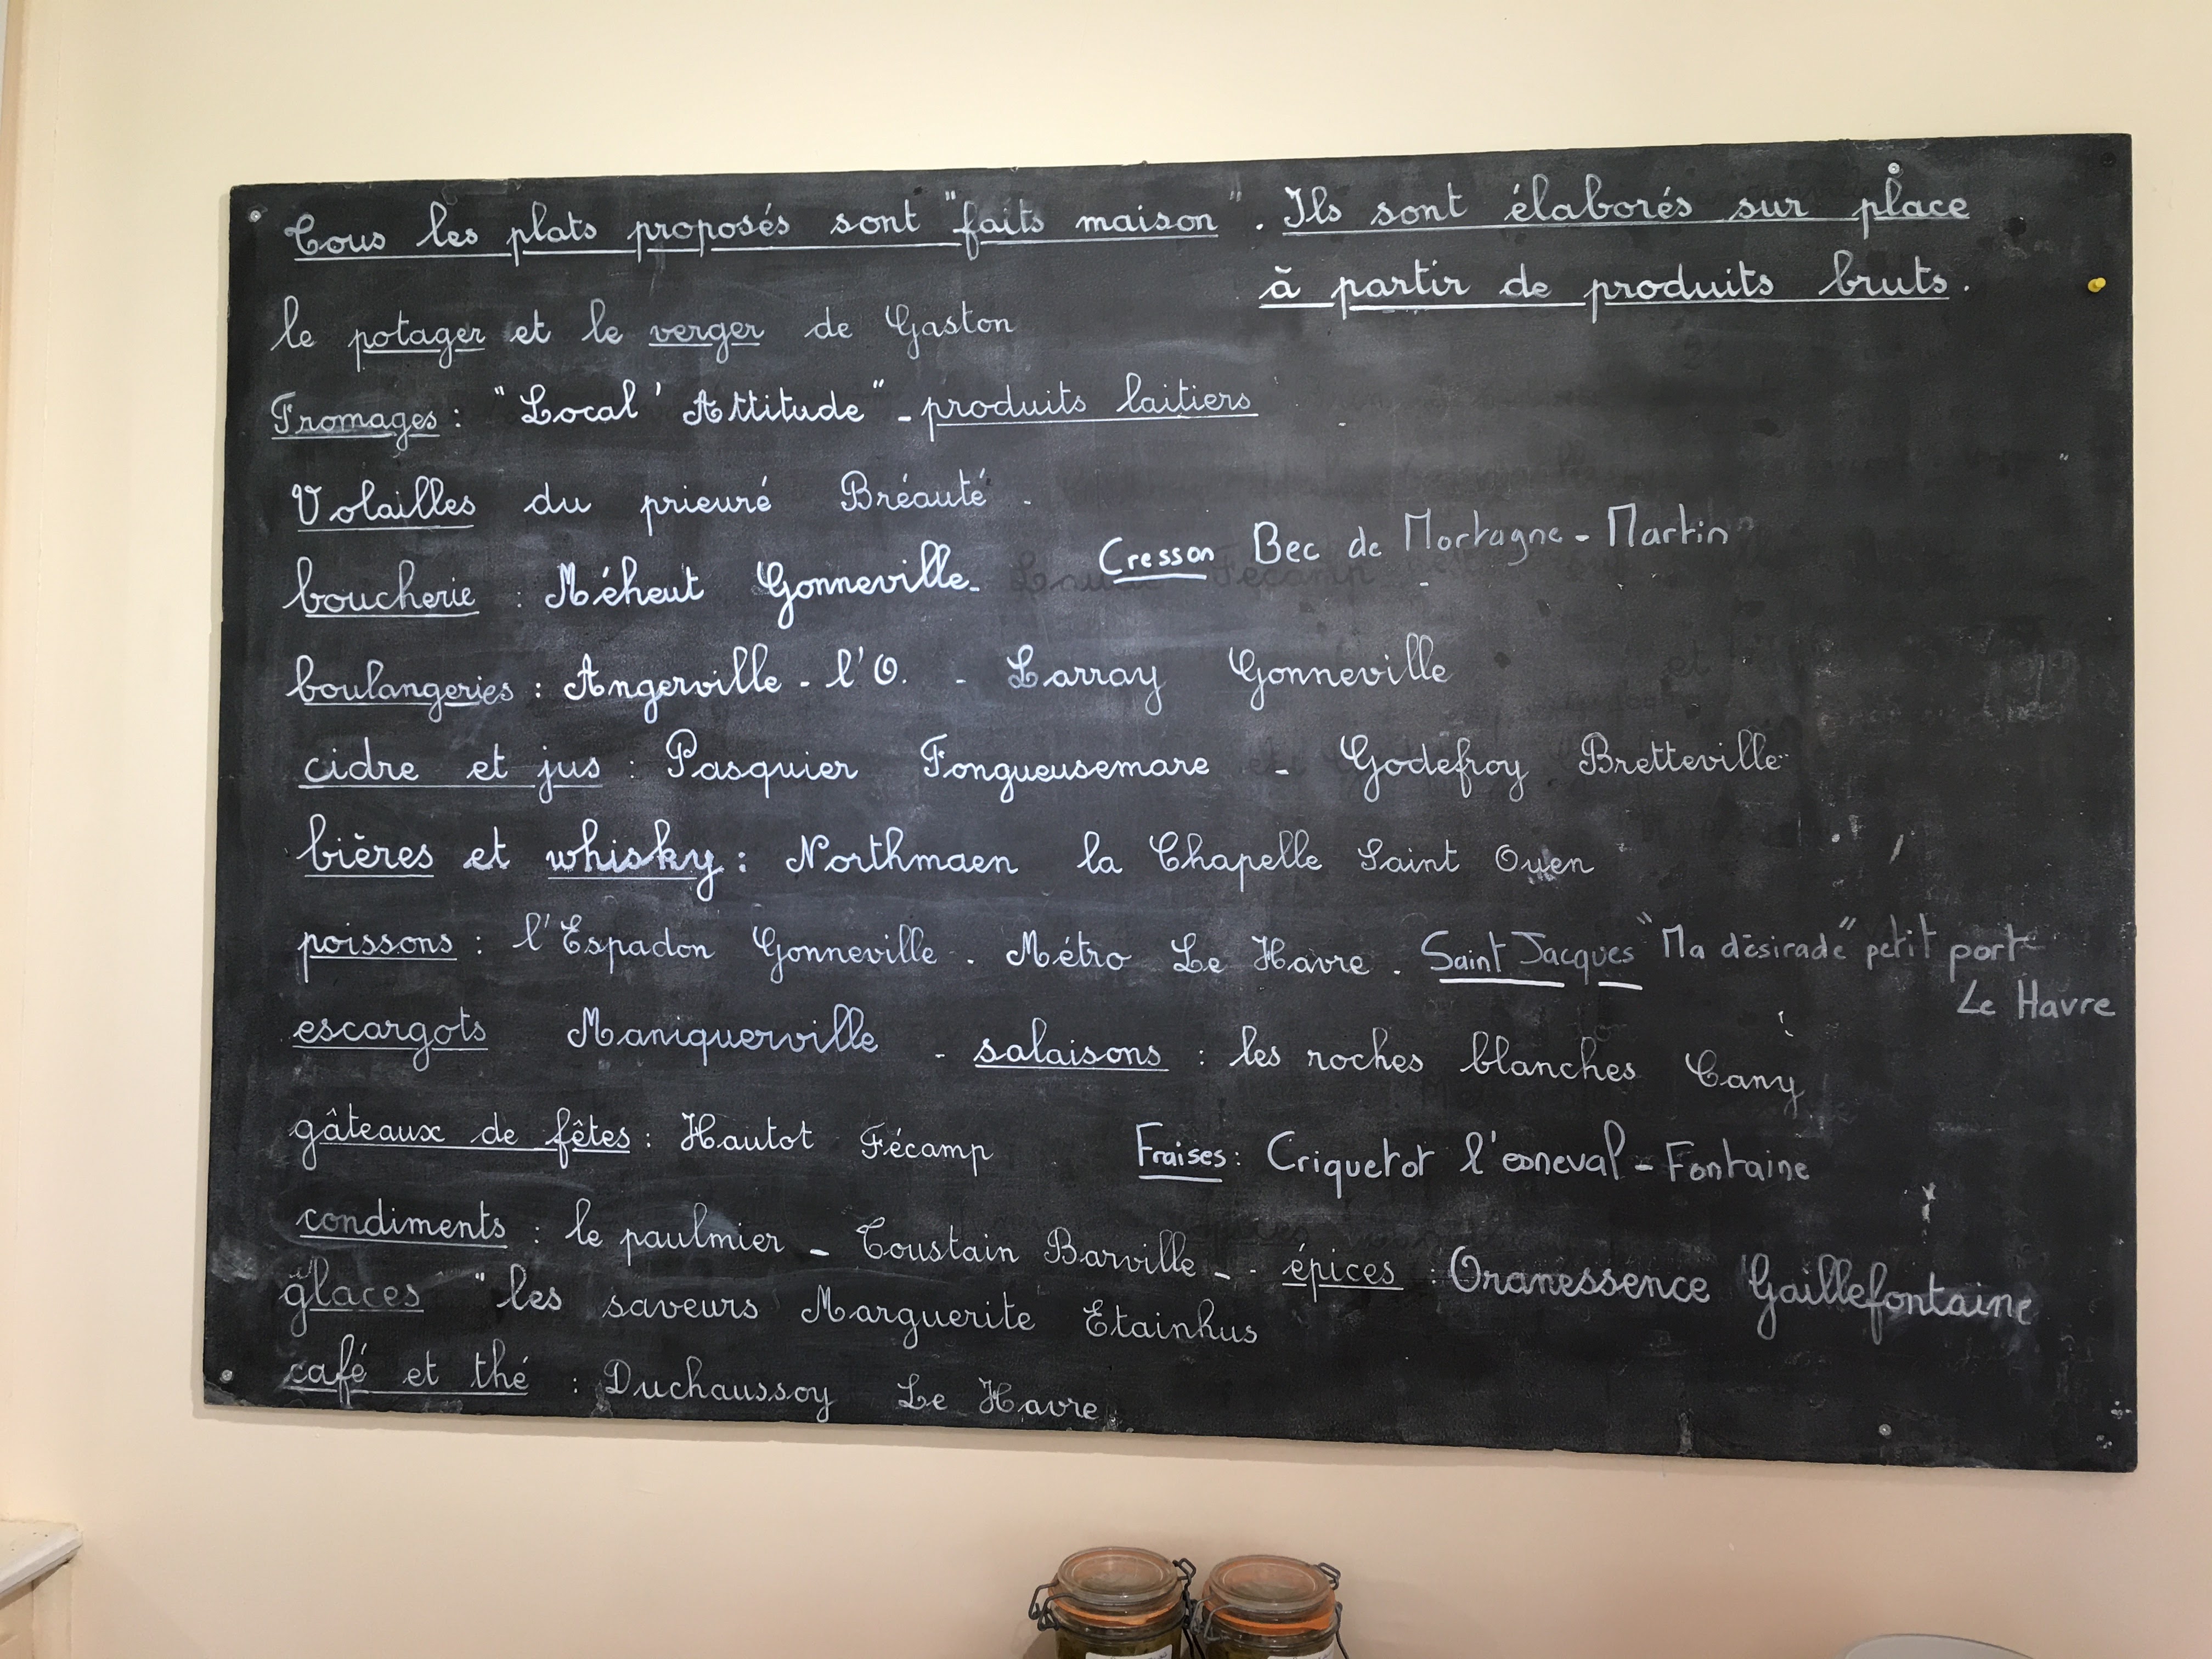 Tous les plats proposés sont "faits maison". Ils sont élaborés sur place
à partir de produits bruts.
le potager et le verger de Gaston
Fromages : "Local' Attitude" - produits laitiers
Volailles du prieuré Bréauté -
Cresson Bec de Mortagne - Martin
boucherie : Méheut Gonneville -
boulangeries : Angerville - l'O. - Larray Gonneville
cidre et jus : Pasquier Fongueusemare - Godefroy Bretteville
bières et whisky : Northmaen la Chapelle Saint Ouen
poissons : l'Espadon Gonneville . Métro Le Havre . Saint Jacques "Ma désirade" petit port
Le Havre
escargots Maniquerville - salaisons : les roches blanches Cany
gâteaux de fêtes : Hautot Fécamp Fraises : Criquetot l'esneval - Fontaine
condiments : le paulmier - Toustain Barville - - épices Oranessence Gaillefontaine
glaces "les saveurs Marguerite Etainhus
café et thé : Duchaussoy Le Havre